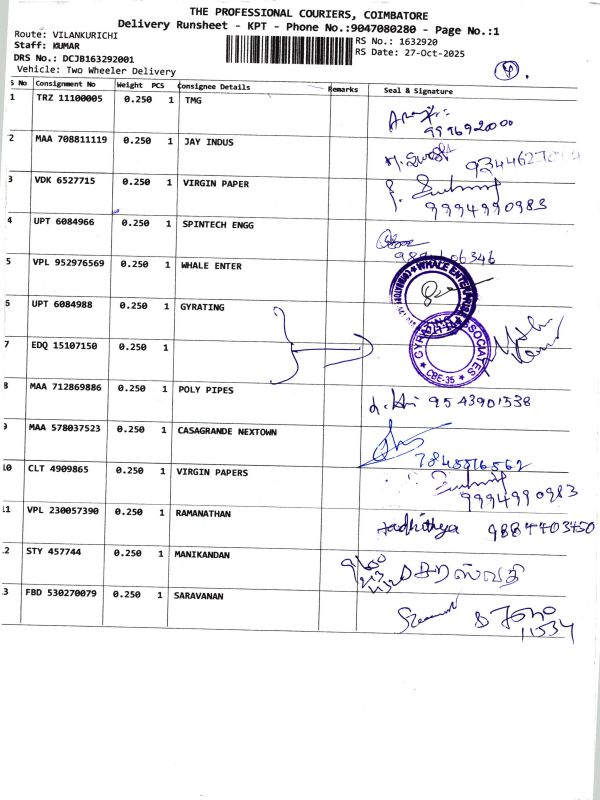 THE PROFESSIONAL COURIERS, COIMBATORE
Delivery Runsheet - KPT - Phone No.:9047080280 - Page No.:1
Route: VILANKURICHI
Staff: KUMAR
DRS No.: DCJB163292001
Vehicle: Two Wheeler Delivery
RS No.: 1632920
RS Date: 27-Oct-2025
S No Consignment No Weight PCS Consignee Details Remarks Seal & Signature
1 TRZ 11100005 0.250 1 TMG
2 MAA 708811119 0.250 1 JAY INDUS
3 VDK 6527715 0.250 1 VIRGIN PAPER
9994990983
4 UPT 6084966 0.250 1 SPINTECH ENGG
5 VPL 952976569 0.250 1 WHALE ENTER
WHALE ENTERPRISES
6 UPT 6084988 0.250 1 GYRATING
GYRATING ASSOCIATES
CBE-35
7 EDQ 15107150 0.250 1
8 MAA 712869886 0.250 1 POLY PIPES
9543901538
9 MAA 578037523 0.250 1 CASAGRANDE NEXTOWN
7845516562
10 CLT 4909865 0.250 1 VIRGIN PAPERS
9994990983
11 VPL 230057390 0.250 1 RAMANATHAN
Aadhithya 9884403450
12 STY 457744 0.250 1 MANIKANDAN
சரஸ்வதி
13 FBD 530270079 0.250 1 SARAVANAN